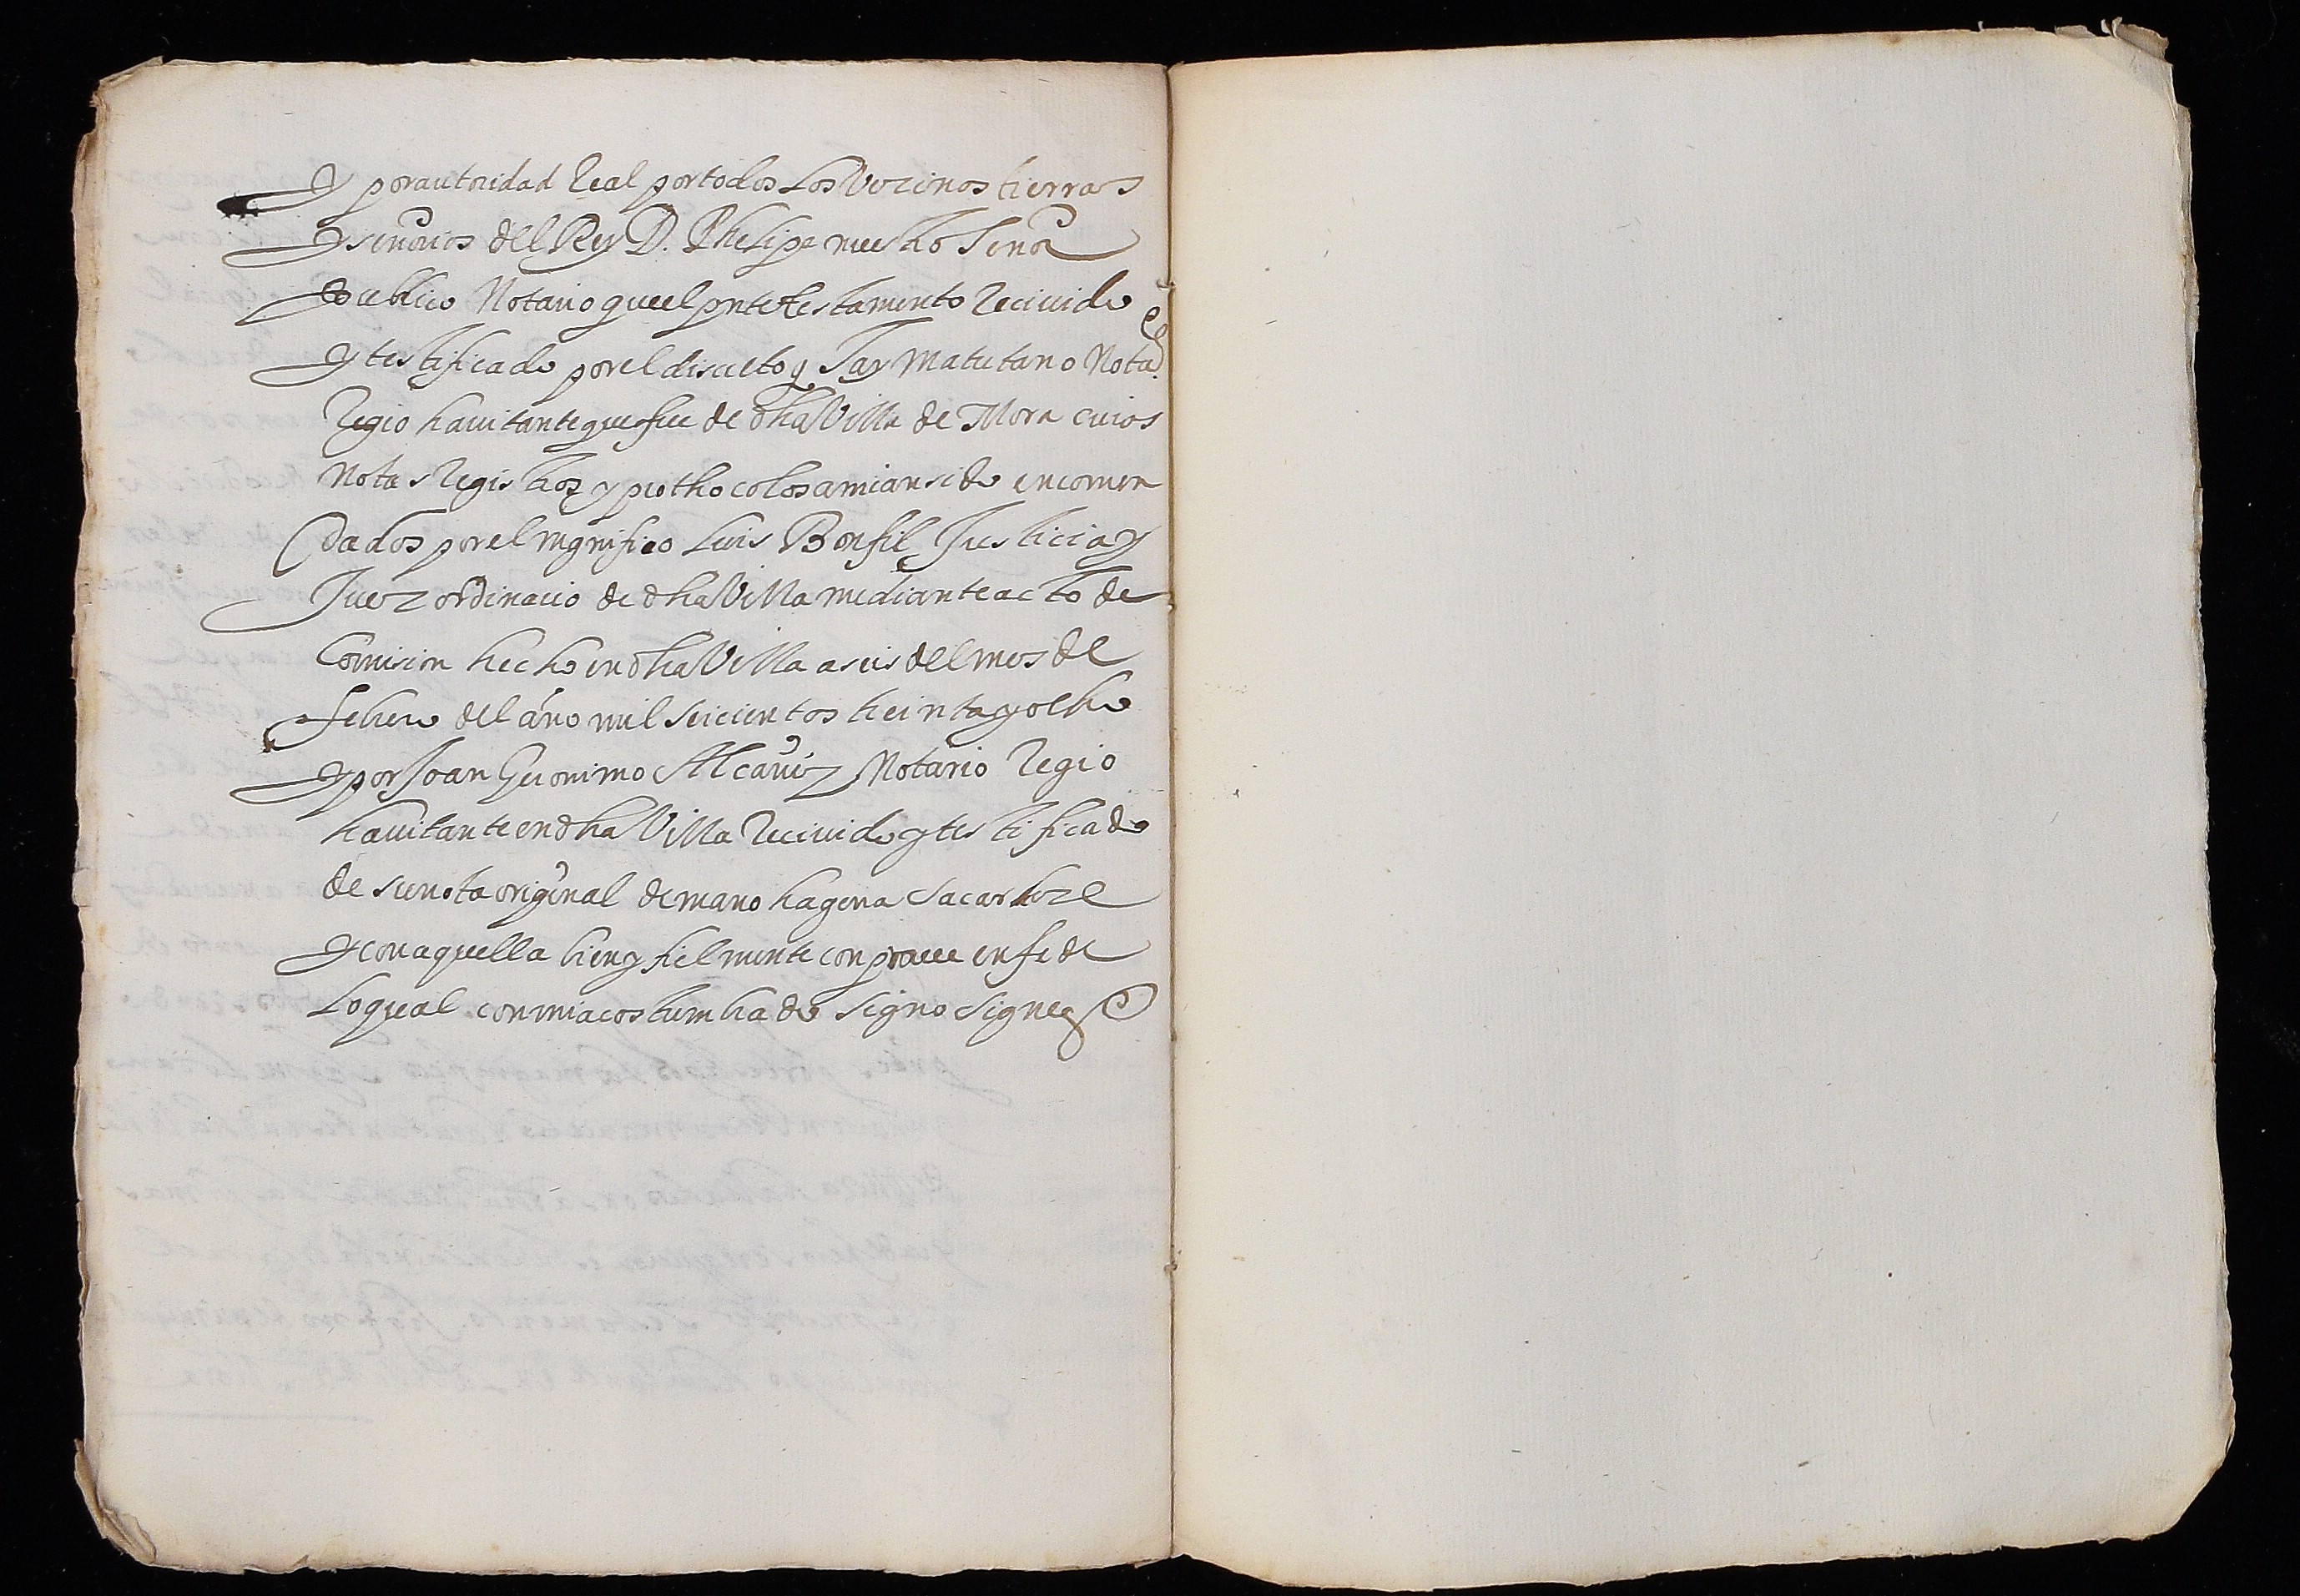 y por autoridad Real por todos los Vezinos tierras
y señorios del Rey D. Phelipe nuestro Señor
publico Notario que el pnte testamento recivido
y testificado por el discreto q Jay Matutano Notaº
Regio havitante que fue de dha Villa de Mora cuios
Notas Registros y prothocolos a mi an sido encomen
dados por el mgnifico Luis Bonfil Justicia y
Juez ordinario de dha Villa mediante acto de
Comision hecho en dha Villa a seis del mes de
febrero del año mil seiscientos treinta y ocho
y por Joan Geronimo Alcañiz Notario Regio
havitante en dha Villa recivido y testificado
de su nota original de mano hagena sacar hize
y con aquella bien y fielmente comprove en fe de
lo qual con mi acostumbrado signo signe